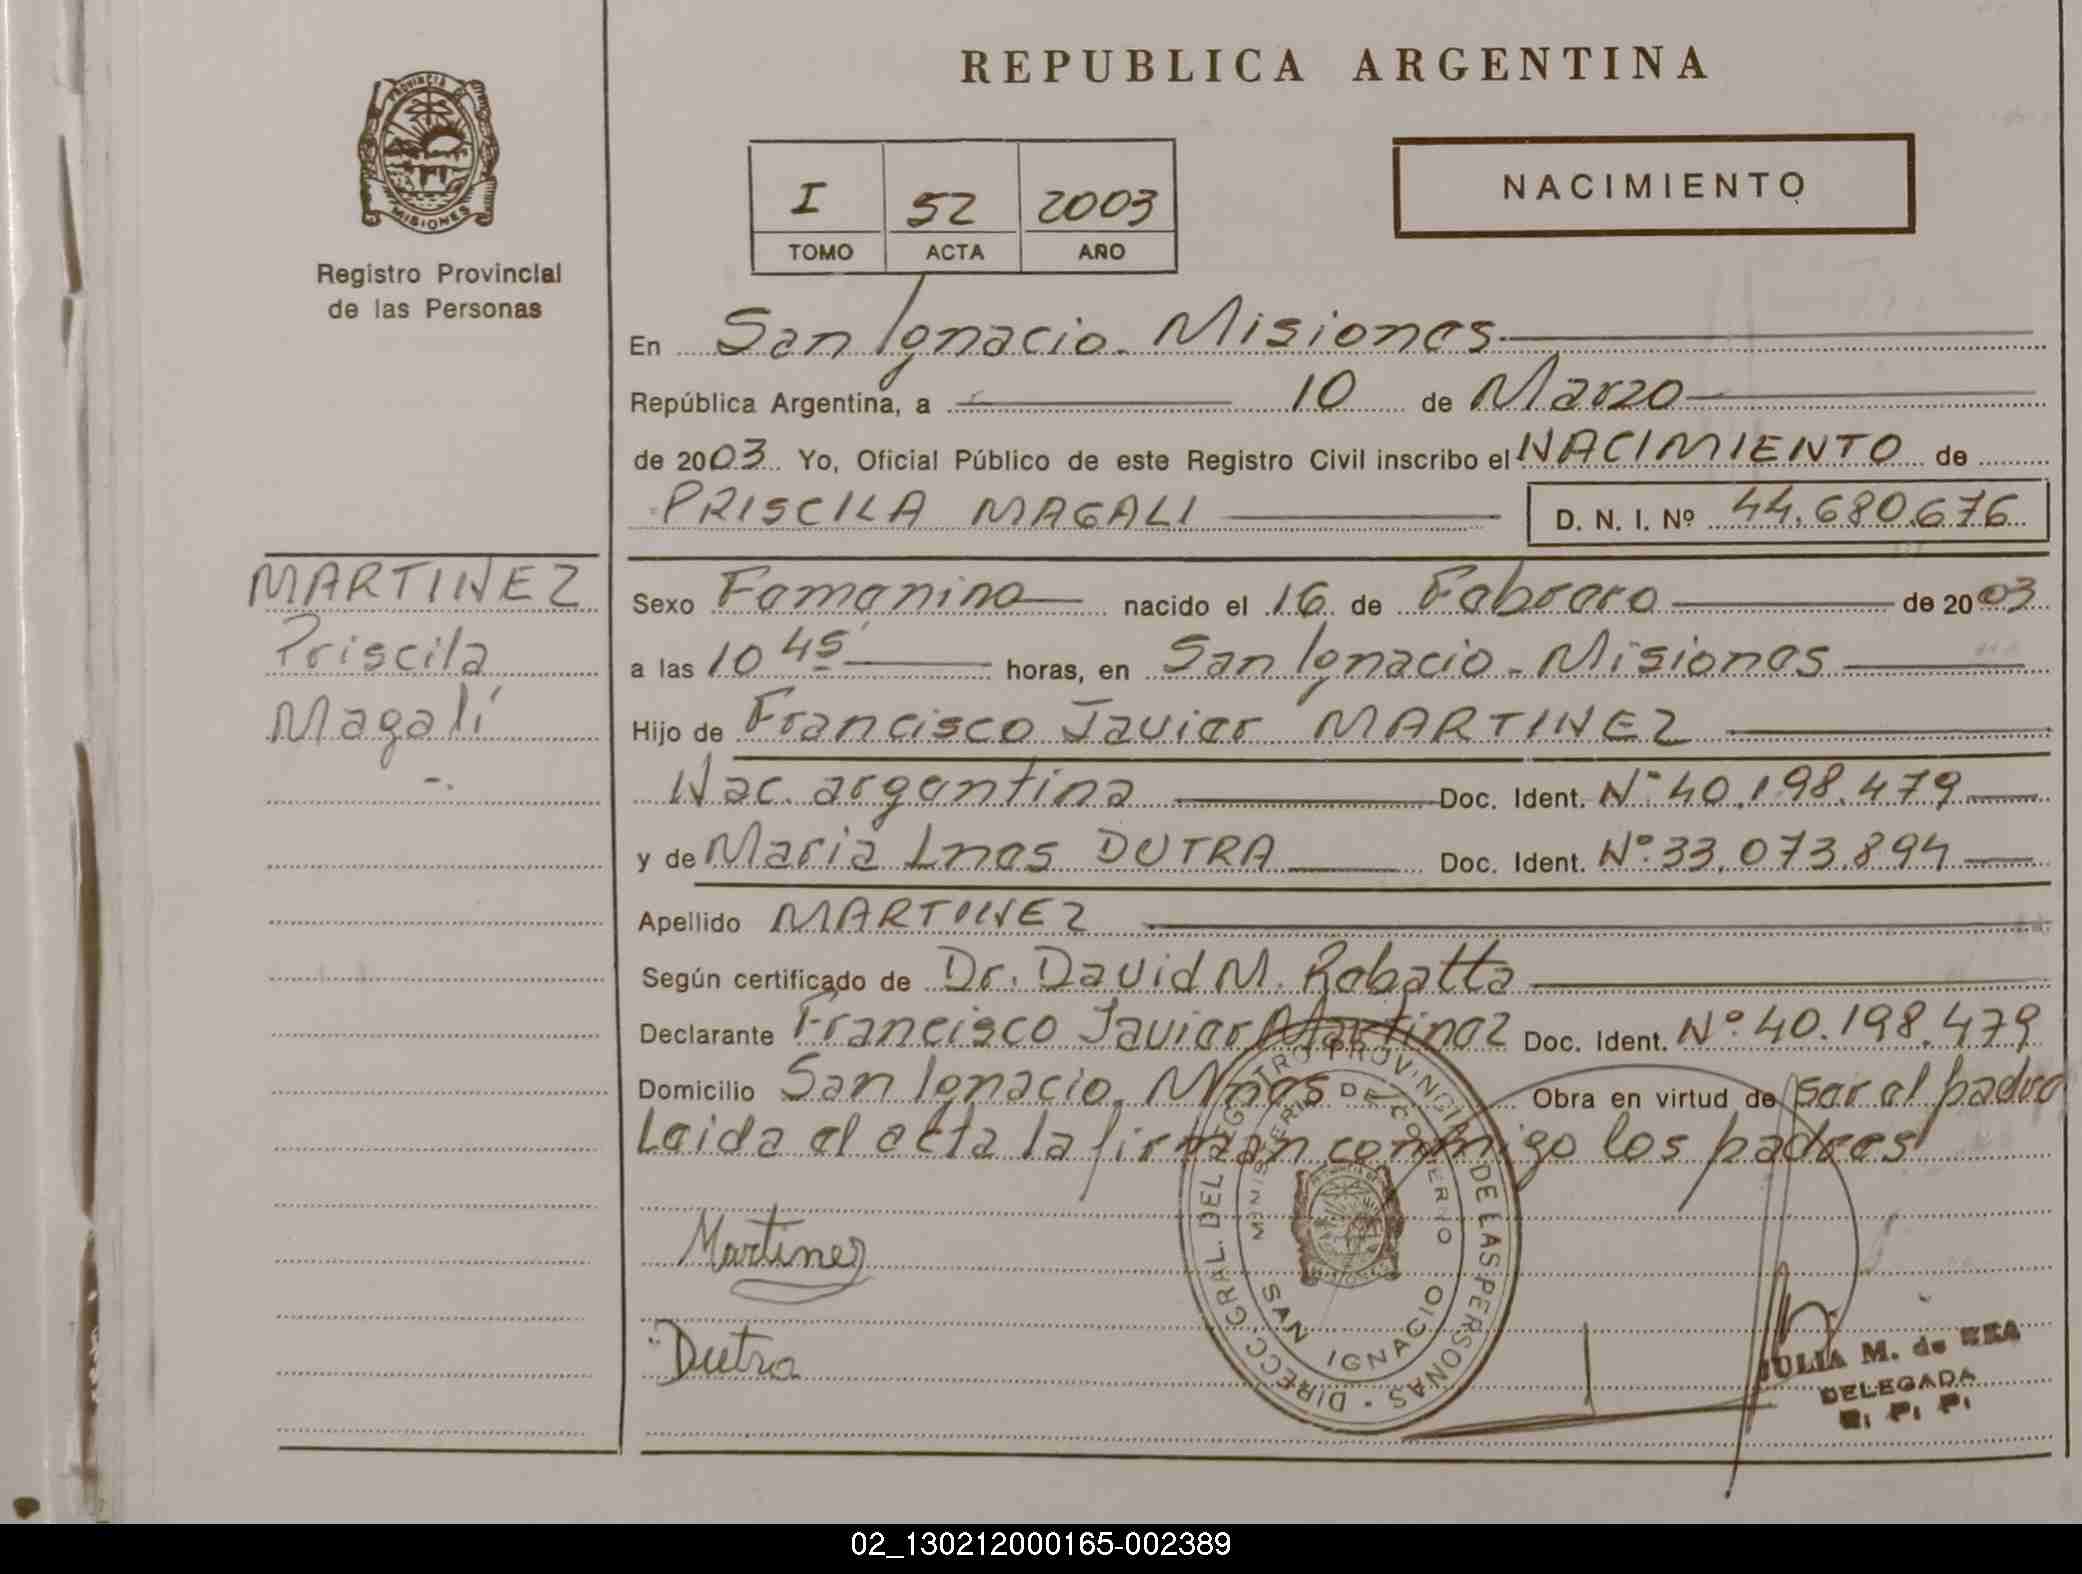 REPUBLICA ARGENTINA
PROVINCIA DE
MISIONES
Registro Provincial
de las Personas
I 52 2003
TOMO ACTA AÑO
NACIMIENTO
En San Ignacio - Misiones
República Argentina, a 10 de Marzo
de 2003 Yo, Oficial Público de este Registro Civil inscribo el NACIMIENTO de
PRISCILA MAGALI D. N. I. Nº 44.680.676
MARTINEZ
Priscila
Magalí
Sexo Femenino nacido el 16 de Febrero de 2003
a las 10 45 horas, en San Ignacio - Misiones
Hijo de Francisco Javier MARTINEZ
Nac. argentina Doc. Ident. Nº 40.198.479
y de Maria Ines DUTRA Doc. Ident. Nº 33.073.894
Apellido MARTINEZ
Según certificado de Dr. David M. Robatta
Declarante Francisco Javier Martinez Doc. Ident. Nº 40.198.479
Domicilio San Ignacio. Mnes Obra en virtud de ser el padre
Leida el acta la firman conmigo los padres
Martinez
Dutra
DIRECC. GRAL. DEL REGISTRO PROVINCIAL DE LAS PERSONAS
MINISTERIO DE GOBIERNO
SAN IGNACIO
JULIA M. de
DELEGADA
R. P. P.
02_130212000165-002389